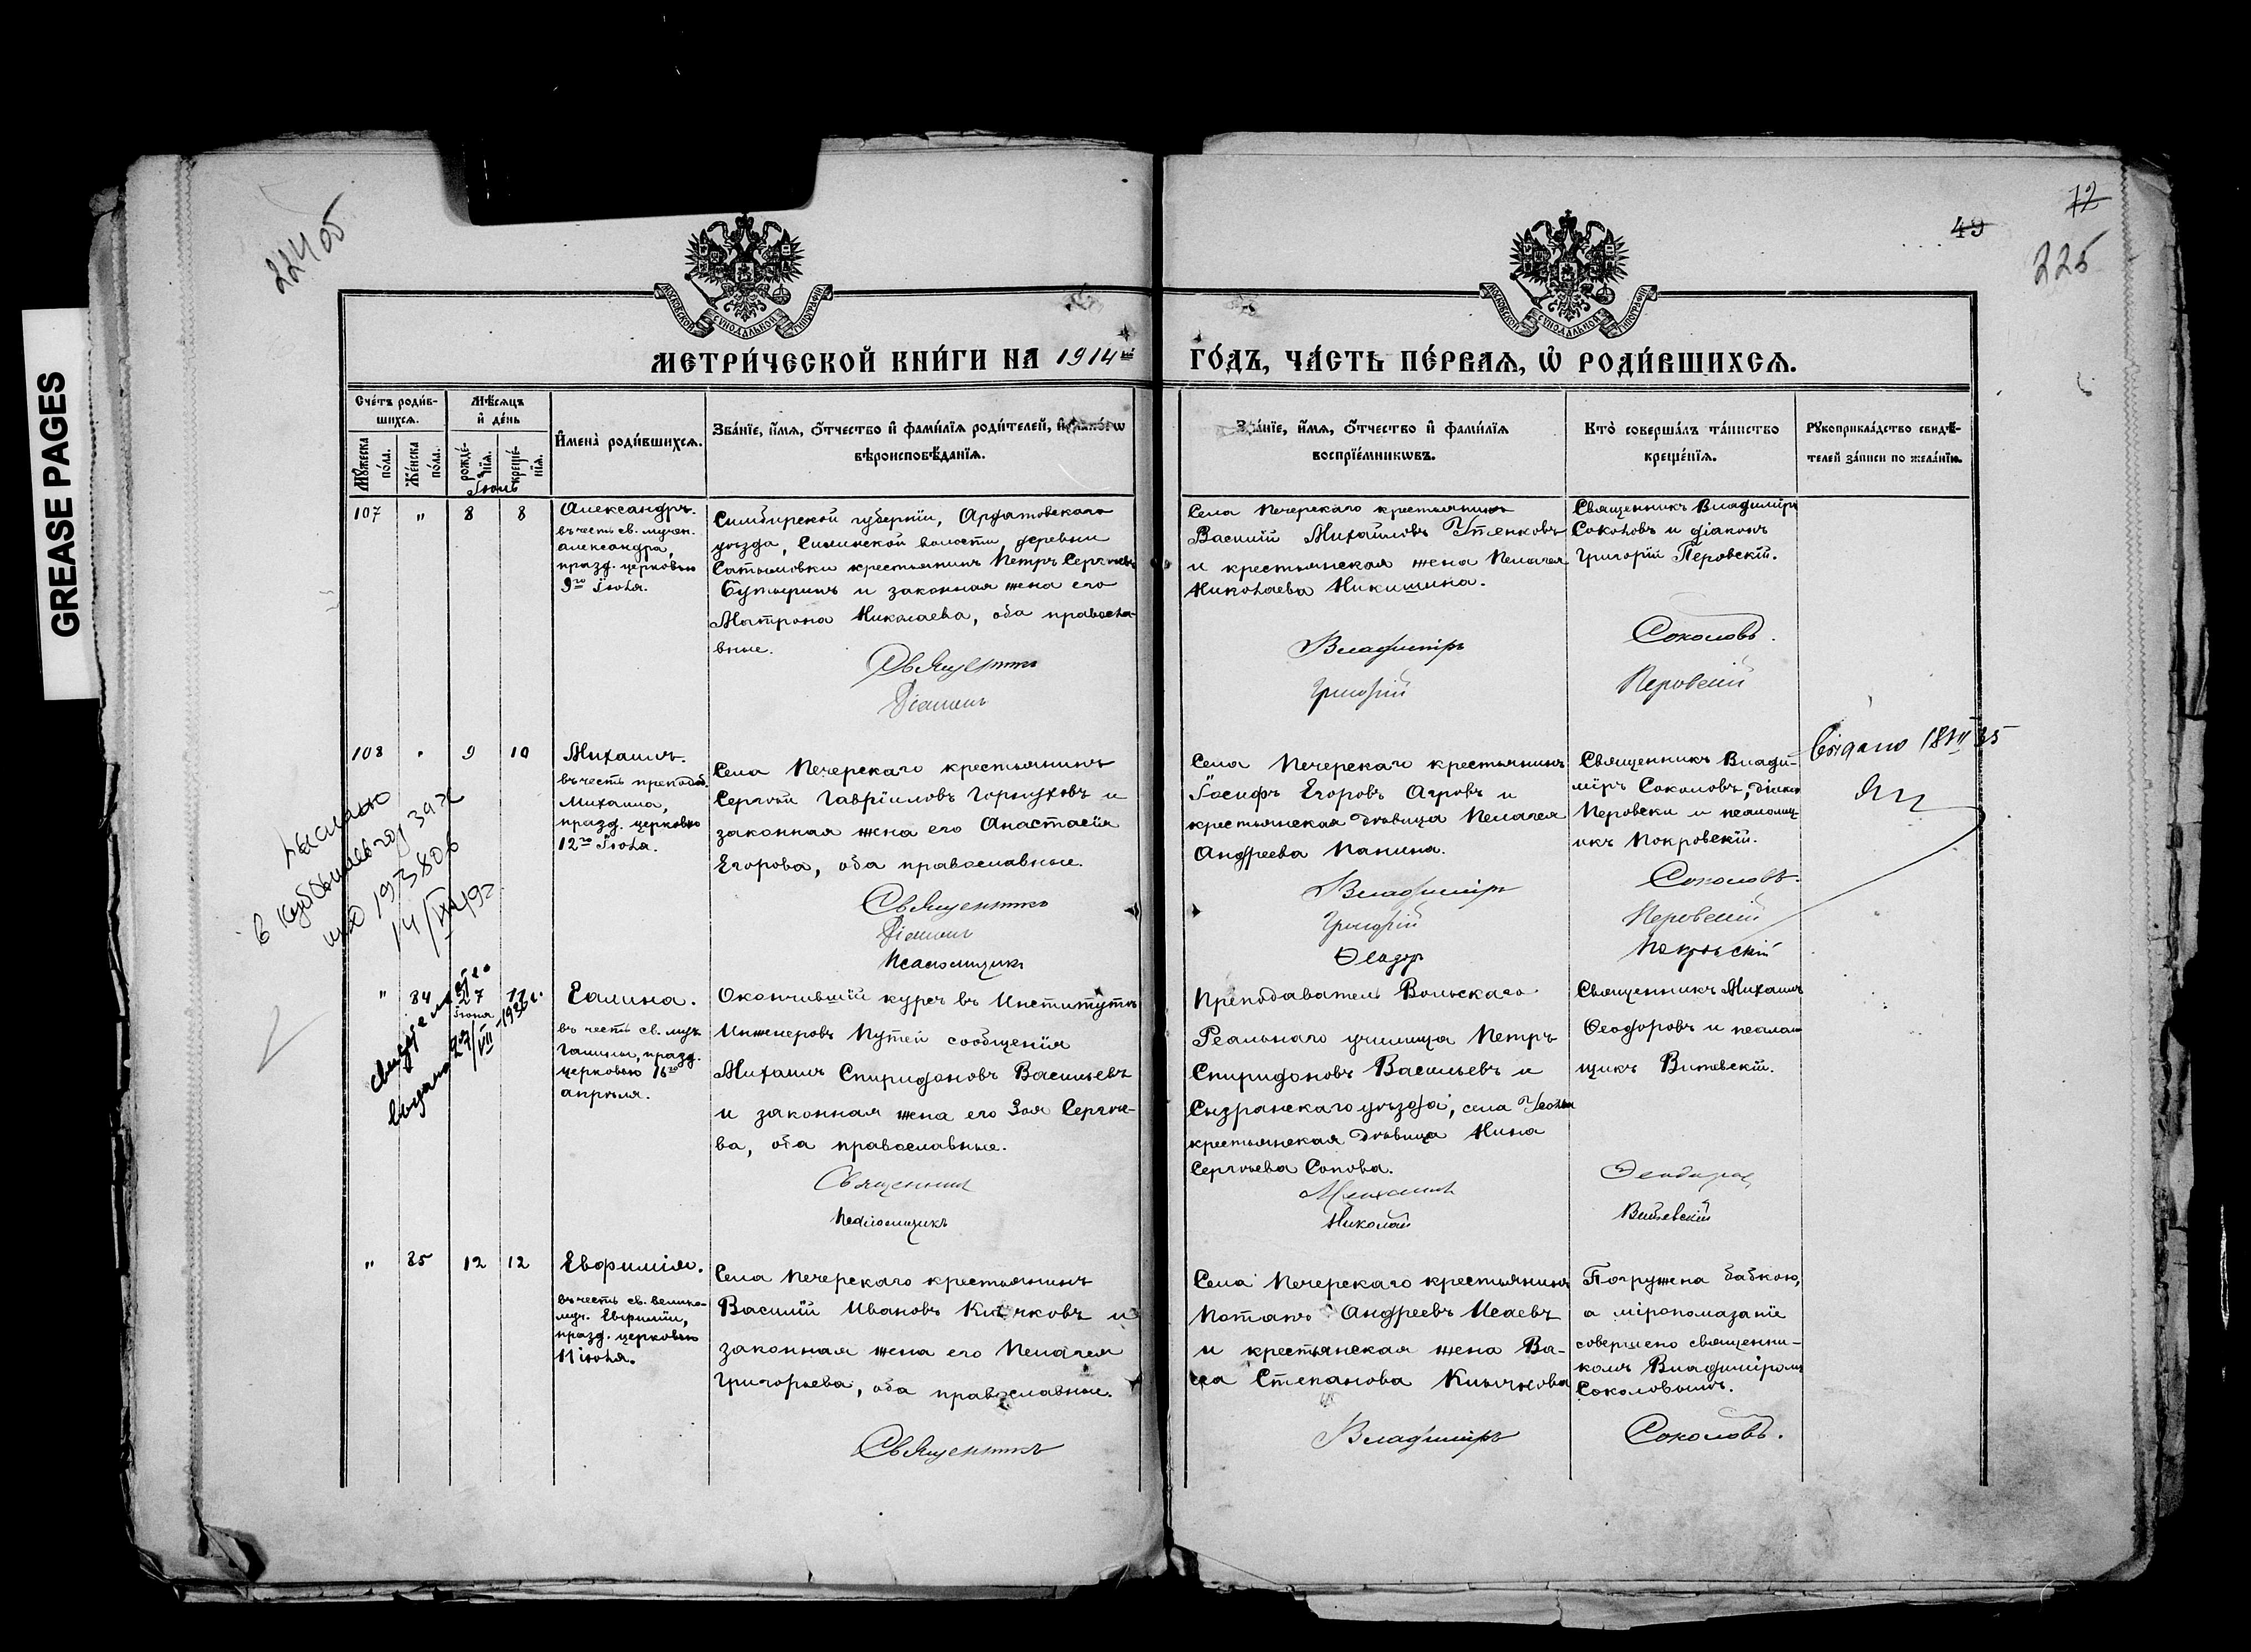 GREASE PAGES
224 об
49
72
225
МОСКОВСКОЙ СѴНОДАЛЬНОЙ ТИПОГРАФІИ
МОСКОВСКОЙ СѴНОДАЛЬНОЙ ТИПОГРАФІИ
МЕТРИ́ЧЕСКОЙ КНИ́ГИ НА 1914й ГО́ДЪ, ЧА́СТЬ ПЕ́РВАѦ, Ѡ҆ РОДИ́ВШИХСѦ.
Сче́тъ роди́в-
шихсѧ.
Мꙋ́жеска
по́ла.
Же́нска
по́ла.
Мѣ́сѧцъ
и҆ де́нь
рожде́-
нїѧ.
креще́-
нїѧ.
И҆мена̀ роди́вшихсѧ.
Зва́нїе, и҆́мѧ, ѻ҆́тчество и҆ фами́лїѧ роди́телей, и҆ како́гѡ
вѣроисповѣ́данїѧ.
Зва́нїе, и҆́мѧ, ѻ҆́тчество и҆ фами́лїѧ
воспрїе́мникѡвъ.
Кто̀ соверша́лъ та́инство
креще́нїѧ.
Рꙋкоприкла́дство свидѣ́-
телей за́писи по жела́нїю.
Іюль
107 " 8 8
Александръ.
въ честь св. мучен.
Александра,
празд. церковью
9го Іюля.
Симбирской губерніи, Ардатовскаго
уѣзда, Силинской волости деревни
крестьянинъ Петръ Сергѣевъ
Бутыринъ и законная жена его
Матрона Николаева, оба правосла-
вные.
Священникъ
Діаконъ
Села Печерскаго крестьянинъ
Василій Михайловъ Утенковъ
и крестьянская жена Пелагея
Николаева Никишина.
Владиміръ
Григорій
Священникъ Владиміръ
Соколовъ и діаконъ
Григорій Перовскій.
Соколовъ.
Перовскій
108 " 9 10
Михаилъ.
въ честь преподоб.
Михаила,
празд. церковью
12го Іюля.
Села Печерскаго крестьянинъ
Сергѣй Гавріиловъ Горнуховъ и
законная жена его Анастасія
Егорова, оба православные.
Священникъ
Діаконъ
Псаломщикъ
Села Печерскаго крестьянинъ
Іосифъ Егоровъ Агровъ и
крестьянская дѣвица Пелагея
Андреева Панина.
Владиміръ
Григорій
Ѳеодоръ
Священникъ Влади-
міръ Соколовъ, діаконъ
Перовски и псаломщ-
икъ Покровскій.
Соколовъ.
Перовскій
Покровскій
Выдано 18 35
в
193806
14/IX
" 84 27 11
Іюня
выдано 27/VII-1936г.
Галина.
въ честь св. муч.
Галины, празд.
церковью 16го
апрѣля.
Окончившій курсъ въ Институтѣ
Инженеровъ Путей сообщенія
Михаилъ Спиридоновъ Васильевъ
и законная жена его Зоя Сергѣе-
ва, оба православные.
Священникъ
псаломщикъ
Преподаватель Вольскаго
Реальнаго училища Петръ
Спиридоновъ Васильевъ и
Сызранскаго уѣзда, села Усолья
крестьянская дѣвица Нина
Сергѣева Сопова.
Михаилъ
Николай
Священникъ Михаилъ
Ѳеодоровъ и псалом-
щикъ Витевскій.
Ѳеодоровъ
Витевскій
" 85 12 12
Евфимія.
въ честь св. велико-
муч. Евфиміи,
празд. церковью
11 іюля.
Села Печерскаго крестьянинъ
Василій Ивановъ Клычковъ и
законная жена его Пелагея
Григорьева, оба православные.
Священникъ
Села Печерскаго крестьянинъ
Потапъ Андреевъ Исаевъ
и крестьянская жена Ва-
сса Степанова Клычкова
Владиміръ
Погружена бабкою,
а мѵропомазаніе
совершено священни-
комъ Владиміромъ
Соколовымъ.
Соколовъ.